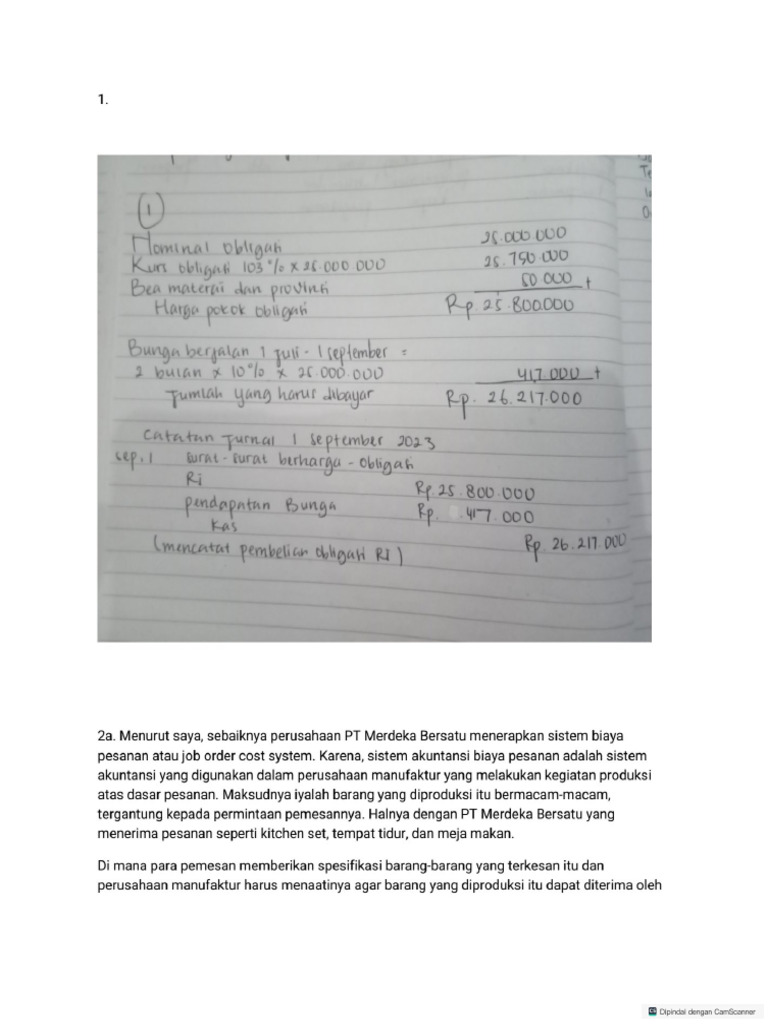 1.
1
Nominal obligasi 25.000.000
Kurs obligasi 103% x 25.000.000 25.750.000
Bea materai dan provinsi 50.000 +
Harga pokok obligasi Rp. 25.800.000
Bunga berjalan 1 Juli - 1 september =
2 bulan x 10% x 25.000.000 417.000 +
Jumlah yang harus dibayar Rp. 26.217.000
Catatan Jurnal 1 September 2023
Sep. 1 surat-surat berharga - obligasi
Ri Rp. 25.800.000
pendapatan Bunga Rp. 417.000
Kas Rp 26.217.000
(mencatat pembelian obligasi RI)
2a. Menurut saya, sebaiknya perusahaan PT Merdeka Bersatu menerapkan sistem biaya
pesanan atau job order cost system. Karena, sistem akuntansi biaya pesanan adalah sistem
akuntansi yang digunakan dalam perusahaan manufaktur yang melakukan kegiatan produksi
atas dasar pesanan. Maksudnya iyalah barang yang diproduksi itu bermacam-macam,
tergantung kepada permintaan pemesannya. Halnya dengan PT Merdeka Bersatu yang
menerima pesanan seperti kitchen set, tempat tidur, dan meja makan.
Di mana para pemesan memberikan spesifikasi barang-barang yang terkesan itu dan
perusahaan manufaktur harus menaatinya agar barang yang diproduksi itu dapat diterima oleh
CS Dipindai dengan CamScanner